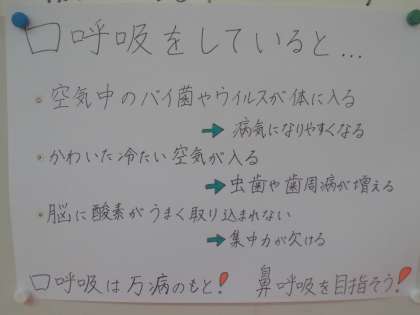 口呼吸をしていると...
・空気中のバイ菌やウイルスが体に入る
➔ 病気になりやすくなる
・かわいた冷たい空気が入る
➔ 虫歯や歯周病が増える
・脳に酸素がうまく取り込まれない
➔ 集中力が欠ける
口呼吸は万病のもと! 鼻呼吸を目指そう!